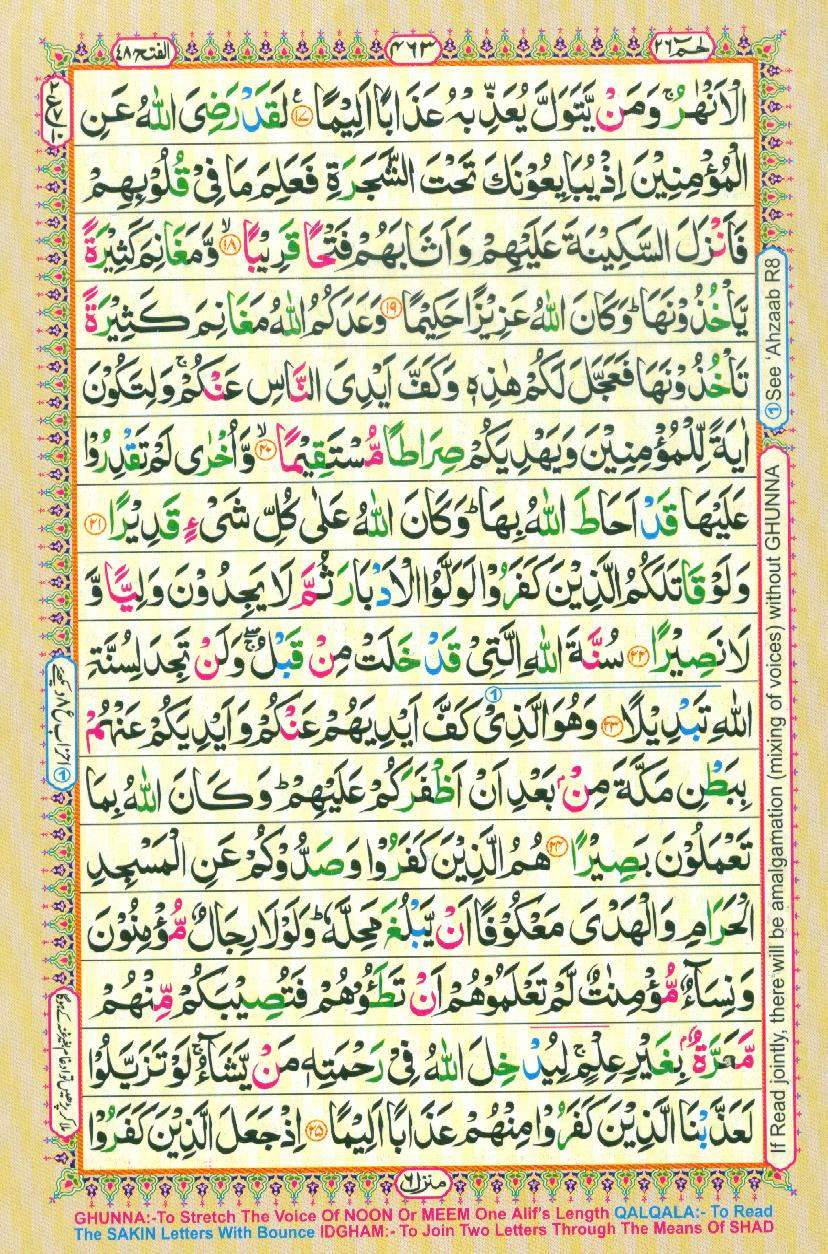 الفتح ٤٨
٤٦٣
حٰم ٢٦
الْاَنْهٰرُ ۚ وَمَنْ يَّتَوَلَّ يُعَذِّبْهُ عَذَابًا اَلِيْمًا ۧ ﴿١٧﴾ لَقَدْ رَضِىَ اللّٰهُ عَنِ
الْمُؤْمِنِيْنَ اِذْ يُبَايِعُوْنَكَ تَحْتَ الشَّجَرَةِ فَعَلِمَ مَا فِىْ قُلُوْبِهِمْ
فَاَنْزَلَ السَّكِيْنَةَ عَلَيْهِمْ وَاَثَابَهُمْ فَتْحًا قَرِيْبًا ۙ ﴿١٨﴾ وَّمَغَانِمَ كَثِيْرَةً
يَّاْخُذُوْنَهَا ؕ وَكَانَ اللّٰهُ عَزِيْزًا حَكِيْمًا ﴿١٩﴾ وَعَدَكُمُ اللّٰهُ مَغَانِمَ كَثِيْرَةً
تَاْخُذُوْنَهَا فَعَجَّلَ لَكُمْ هٰذِهٖ وَكَفَّ اَيْدِىَ النَّاسِ عَنْكُمْ ۚ وَلِتَكُوْنَ
اٰيَةً لِّلْمُؤْمِنِيْنَ وَيَهْدِيَكُمْ صِرَاطًا مُّسْتَقِيْمًا ۙ ﴿٢٠﴾ وَّاُخْرٰى لَمْ تَقْدِرُوْا
عَلَيْهَا قَدْ اَحَاطَ اللّٰهُ بِهَا ؕ وَكَانَ اللّٰهُ عَلٰى كُلِّ شَىْءٍ قَدِيْرًا ﴿٢١﴾
وَلَوْ قَاتَلَكُمُ الَّذِيْنَ كَفَرُوْا لَوَلَّوُا الْاَدْبَارَ ثُمَّ لَا يَجِدُوْنَ وَلِيًّا وَّ
لَا نَصِيْرًا ﴿٢٢﴾ سُنَّةَ اللّٰهِ الَّتِىْ قَدْ خَلَتْ مِنْ قَبْلُ ۖۚ وَلَنْ تَجِدَ لِسُنَّةِ
اللّٰهِ تَبْدِيْلًا ﴿٢٣﴾ وَهُوَ الَّذِىْ كَفَّ اَيْدِيَهُمْ عَنْكُمْ وَاَيْدِيَكُمْ عَنْهُمْ
بِبَطْنِ مَكَّةَ مِنْۢ بَعْدِ اَنْ اَظْفَرَكُمْ عَلَيْهِمْ ؕ وَكَانَ اللّٰهُ بِمَا
تَعْمَلُوْنَ بَصِيْرًا ﴿٢٤﴾ هُمُ الَّذِيْنَ كَفَرُوْا وَصَدُّوْكُمْ عَنِ الْمَسْجِدِ
الْحَرَامِ وَالْهَدْىَ مَعْكُوْفًا اَنْ يَّبْلُغَ مَحِلَّهٗ ؕ وَلَوْلَا رِجَالٌ مُّؤْمِنُوْنَ
وَنِسَآءٌ مُّؤْمِنٰتٌ لَّمْ تَعْلَمُوْهُمْ اَنْ تَطَـُٔوْهُمْ فَتُصِيْبَكُمْ مِّنْهُمْ
مَّعَرَّةٌۢ بِغَيْرِ عِلْمٍ ۚ لِيُدْخِلَ اللّٰهُ فِىْ رَحْمَتِهٖ مَنْ يَّشَآءُ ۚ لَوْ تَزَيَّلُوْا
لَعَذَّبْنَا الَّذِيْنَ كَفَرُوْا مِنْهُمْ عَذَابًا اَلِيْمًا ﴿٢٥﴾ اِذْ جَعَلَ الَّذِيْنَ كَفَرُوْا
① See 'Ahzaab R8
If Read jointly, there will be amalgamation (mixing of voices) without GHUNNA
منزل ٦
GHUNNA:-To Stretch The Voice Of NOON Or MEEM One Alif's Length QALQALA:- To Read
The SAKIN Letters With Bounce IDGHAM:- To Join Two Letters Through The Means Of SHAD